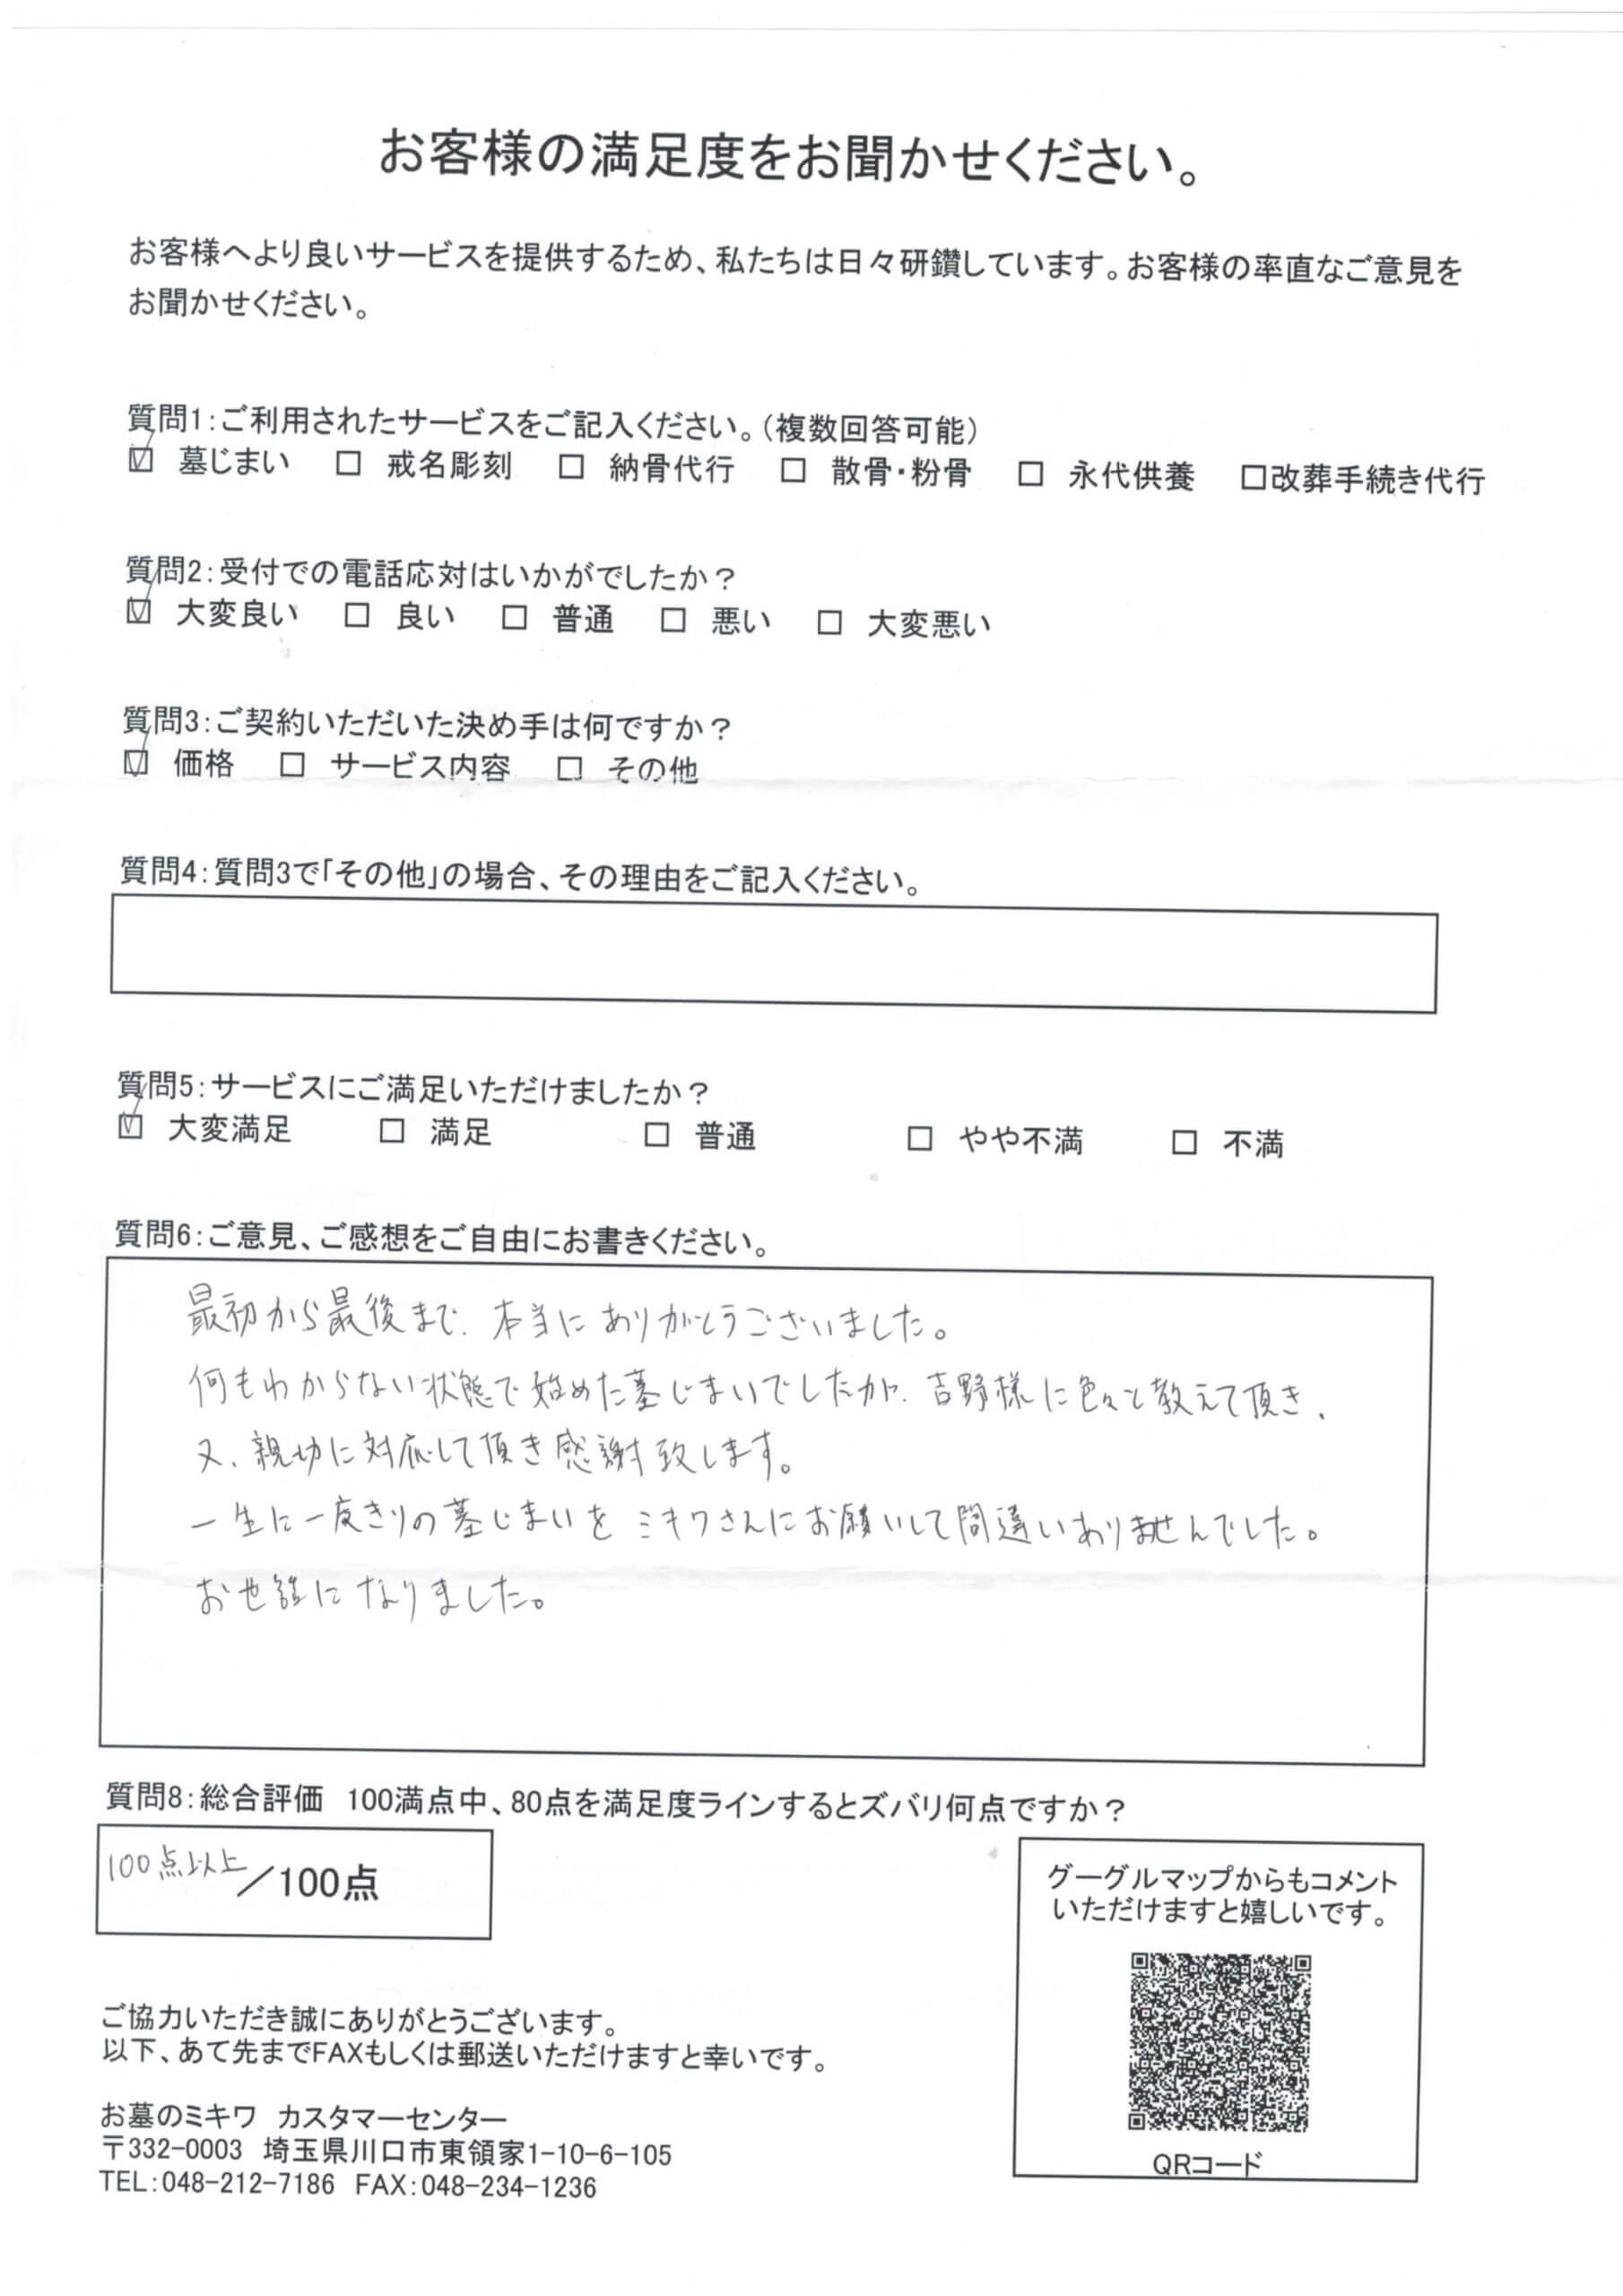 お客様の満足度をお聞かせください。
お客様へより良いサービスを提供するため、私たちは日々研鑽しています。お客様の率直なご意見を
お聞かせください。
質問1:ご利用されたサービスをご記入ください。(複数回答可能)
☑ 墓じまい □ 戒名彫刻 □ 納骨代行 □ 散骨・粉骨 □ 永代供養 □改葬手続き代行
質問2:受付での電話応対はいかがでしたか?
☑ 大変良い □ 良い □ 普通 □ 悪い □ 大変悪い
質問3:ご契約いただいた決め手は何ですか?
☑ 価格 □ サービス内容 □ その他
質問4:質問3で「その他」の場合、その理由をご記入ください。
質問5:サービスにご満足いただけましたか?
☑ 大変満足 □ 満足 □ 普通 □ やや不満 □ 不満
質問6:ご意見、ご感想をご自由にお書きください。
最初から最後まで、本当にありがとうございました。
何もわからない状態で始めた墓じまいでしたが、吉野様に色々と教えて頂き、
又、親切に対応して頂き感謝致します。
一生に一度きりの墓じまいをミキワさんにお願いして間違いありませんでした。
お世話になりました。
質問8:総合評価 100満点中、80点を満足度ラインするとズバリ何点ですか?
100点以上/100点
グーグルマップからもコメント
いただけますと嬉しいです。
QRコード
ご協力いただき誠にありがとうございます。
以下、あて先までFAXもしくは郵送いただけますと幸いです。
お墓のミキワ カスタマーセンター
〒332-0003 埼玉県川口市東領家1-10-6-105
TEL:048-212-7186 FAX:048-234-1236